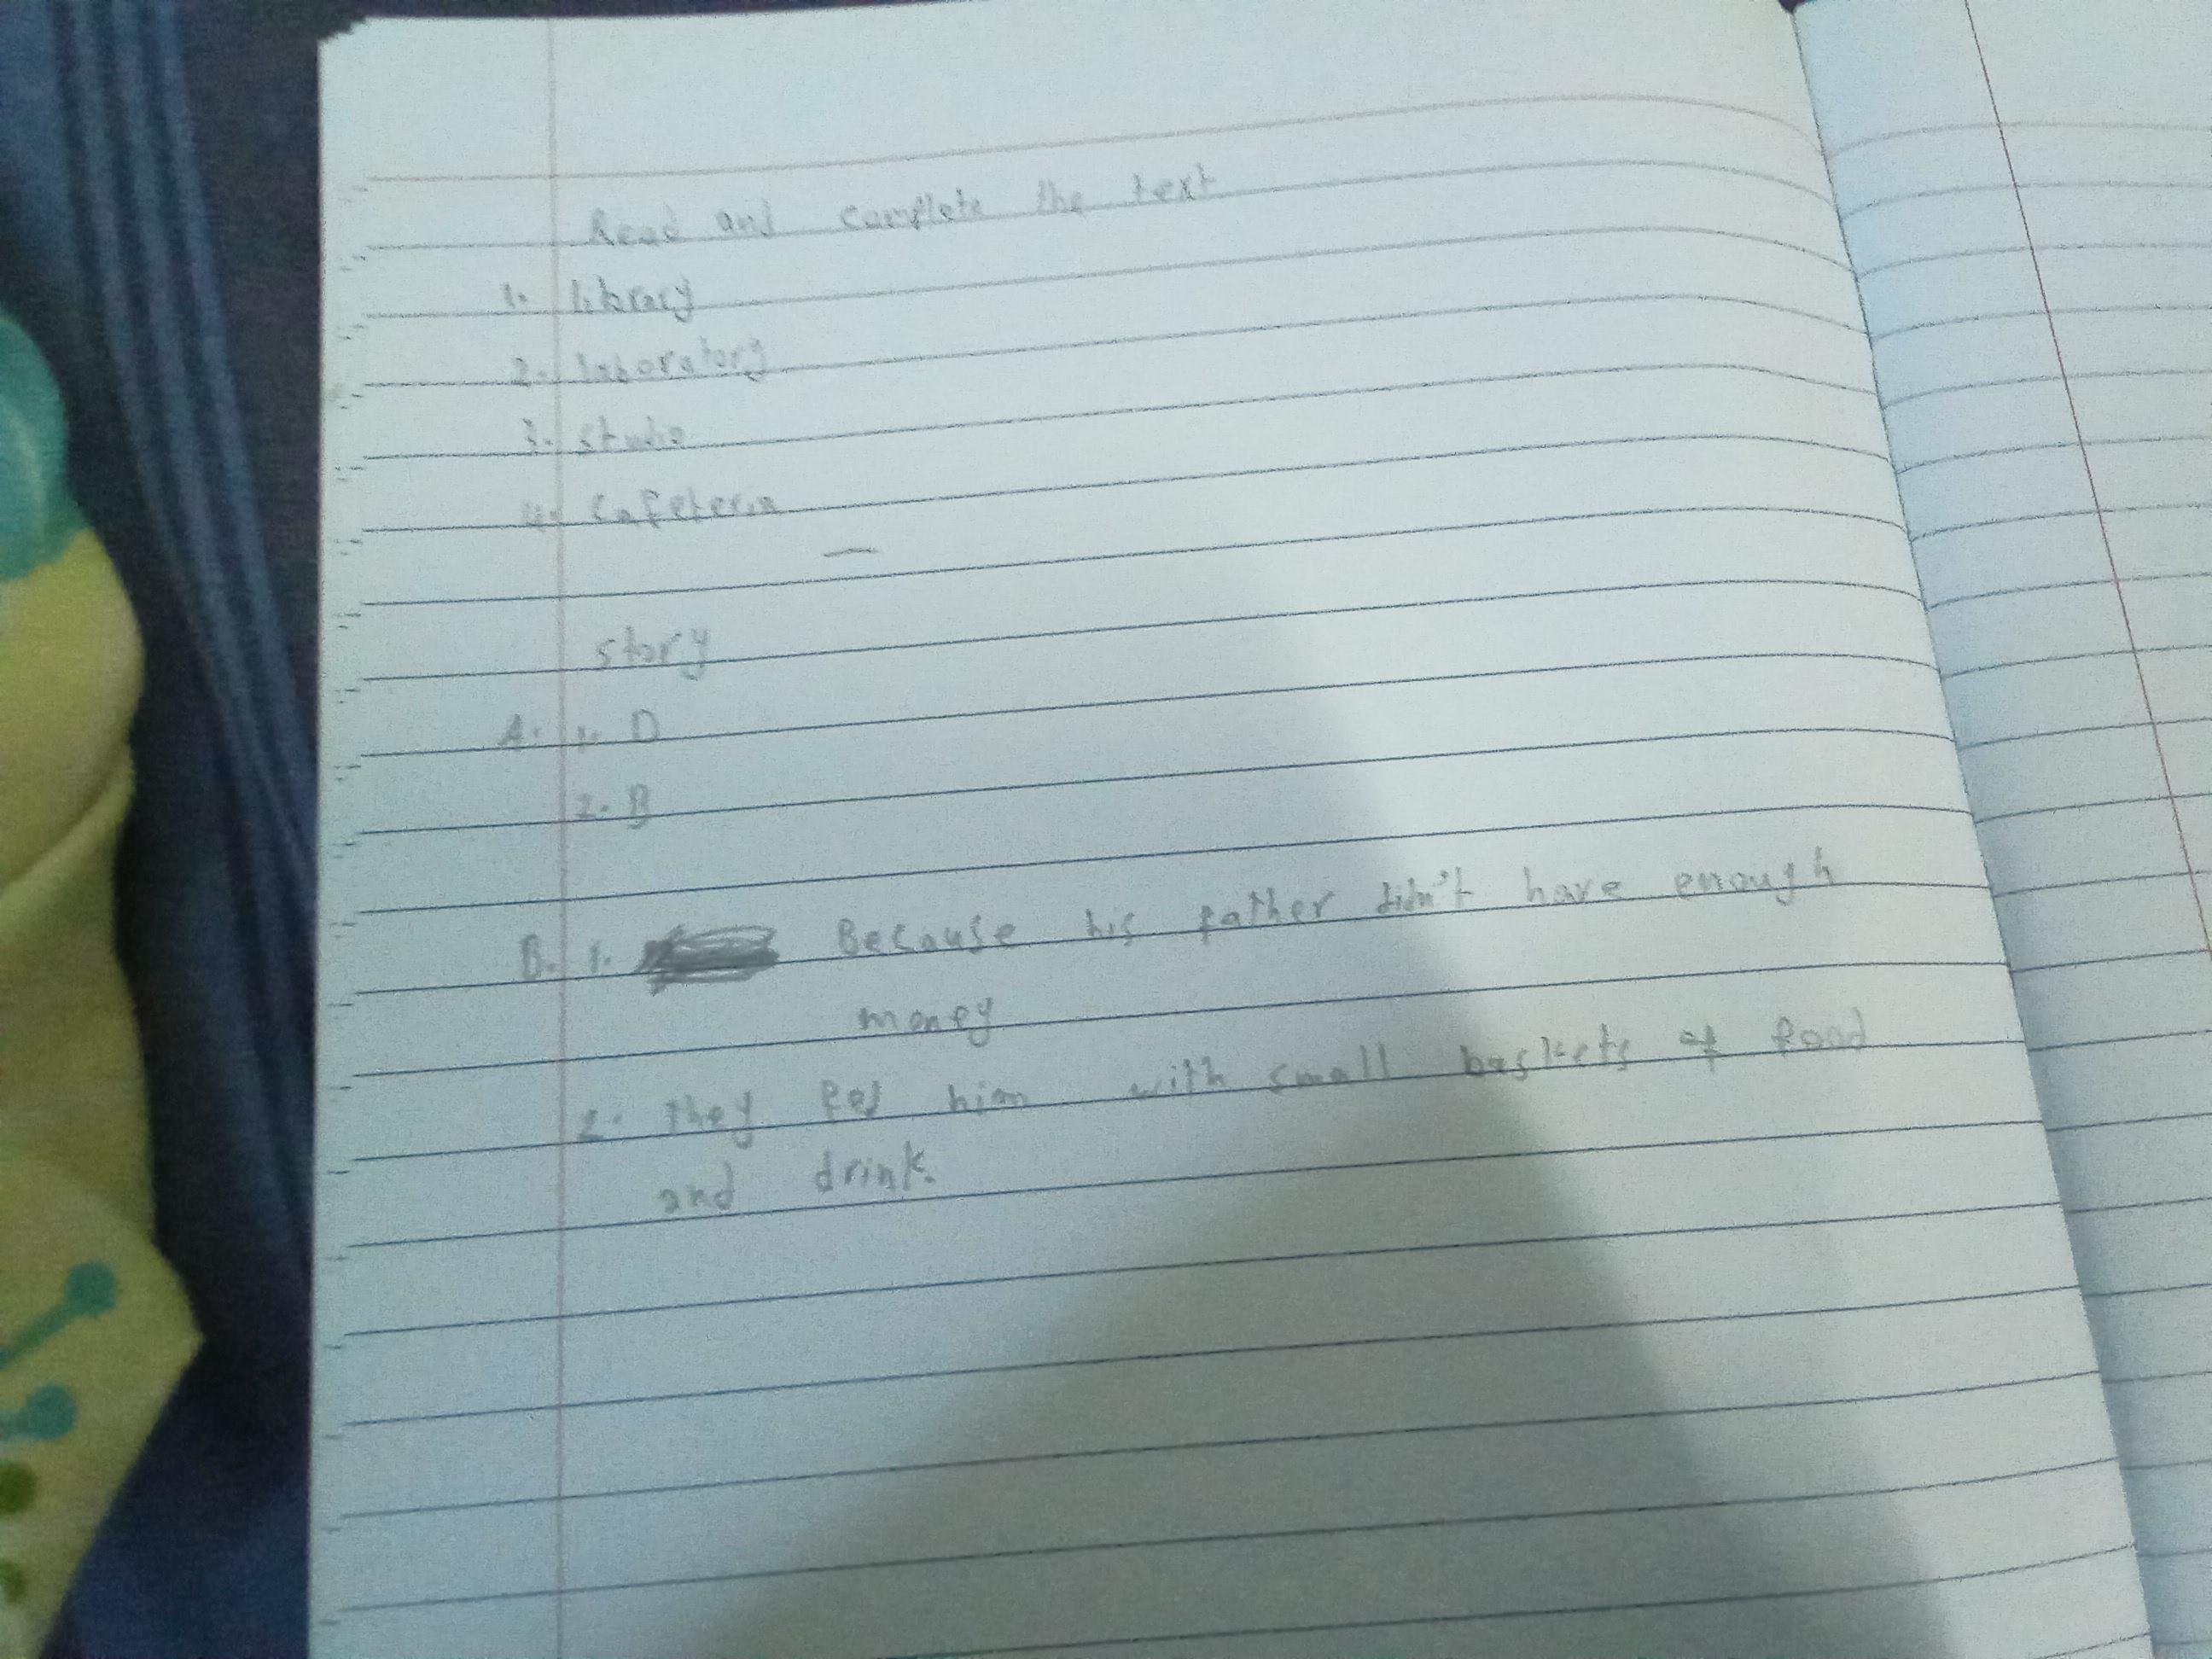 Read and complete the text
1. library
2. laboratory
3. studio
4. Cafeteria
story
A. 1. D
2. B
B. 1. Because his father didn't have enough
money
2. they fed him with small baskets of food
and drink.